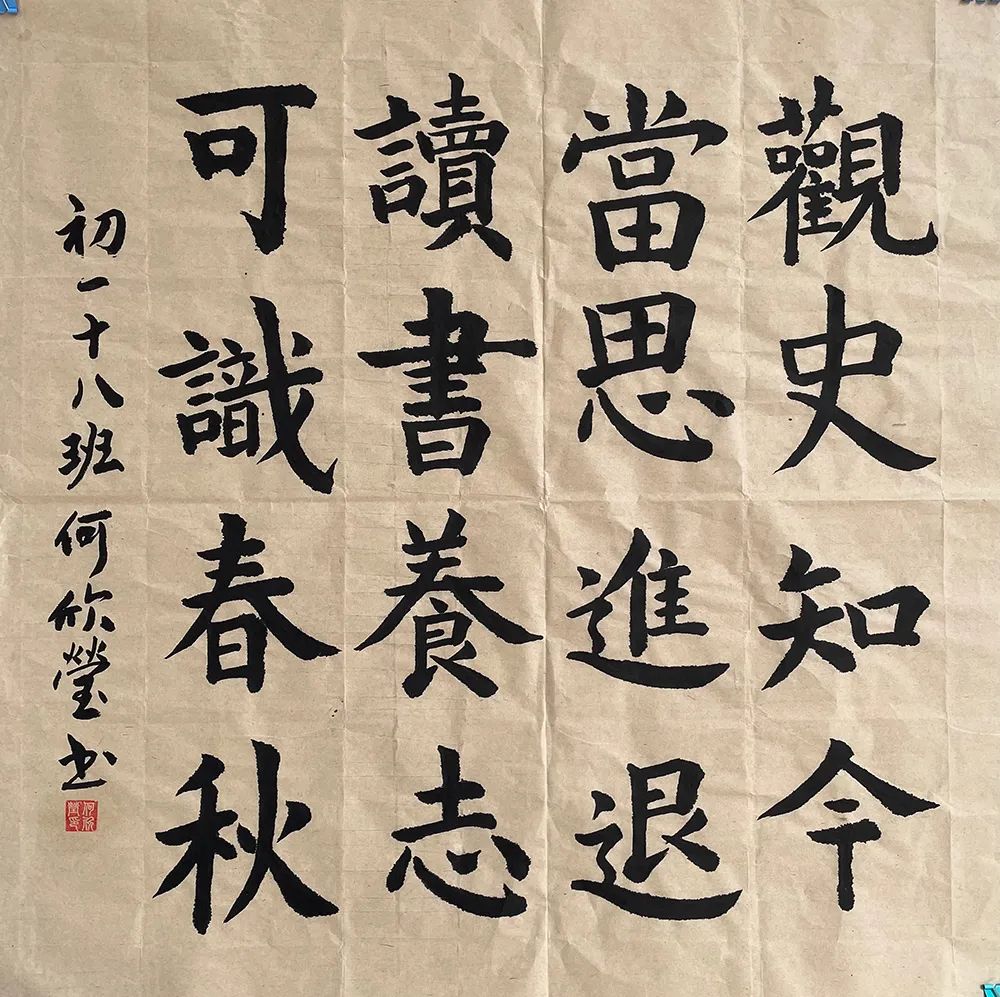 觀史知今
當思進退
讀書養志
可識春秋
初一十八班何欣瑩书